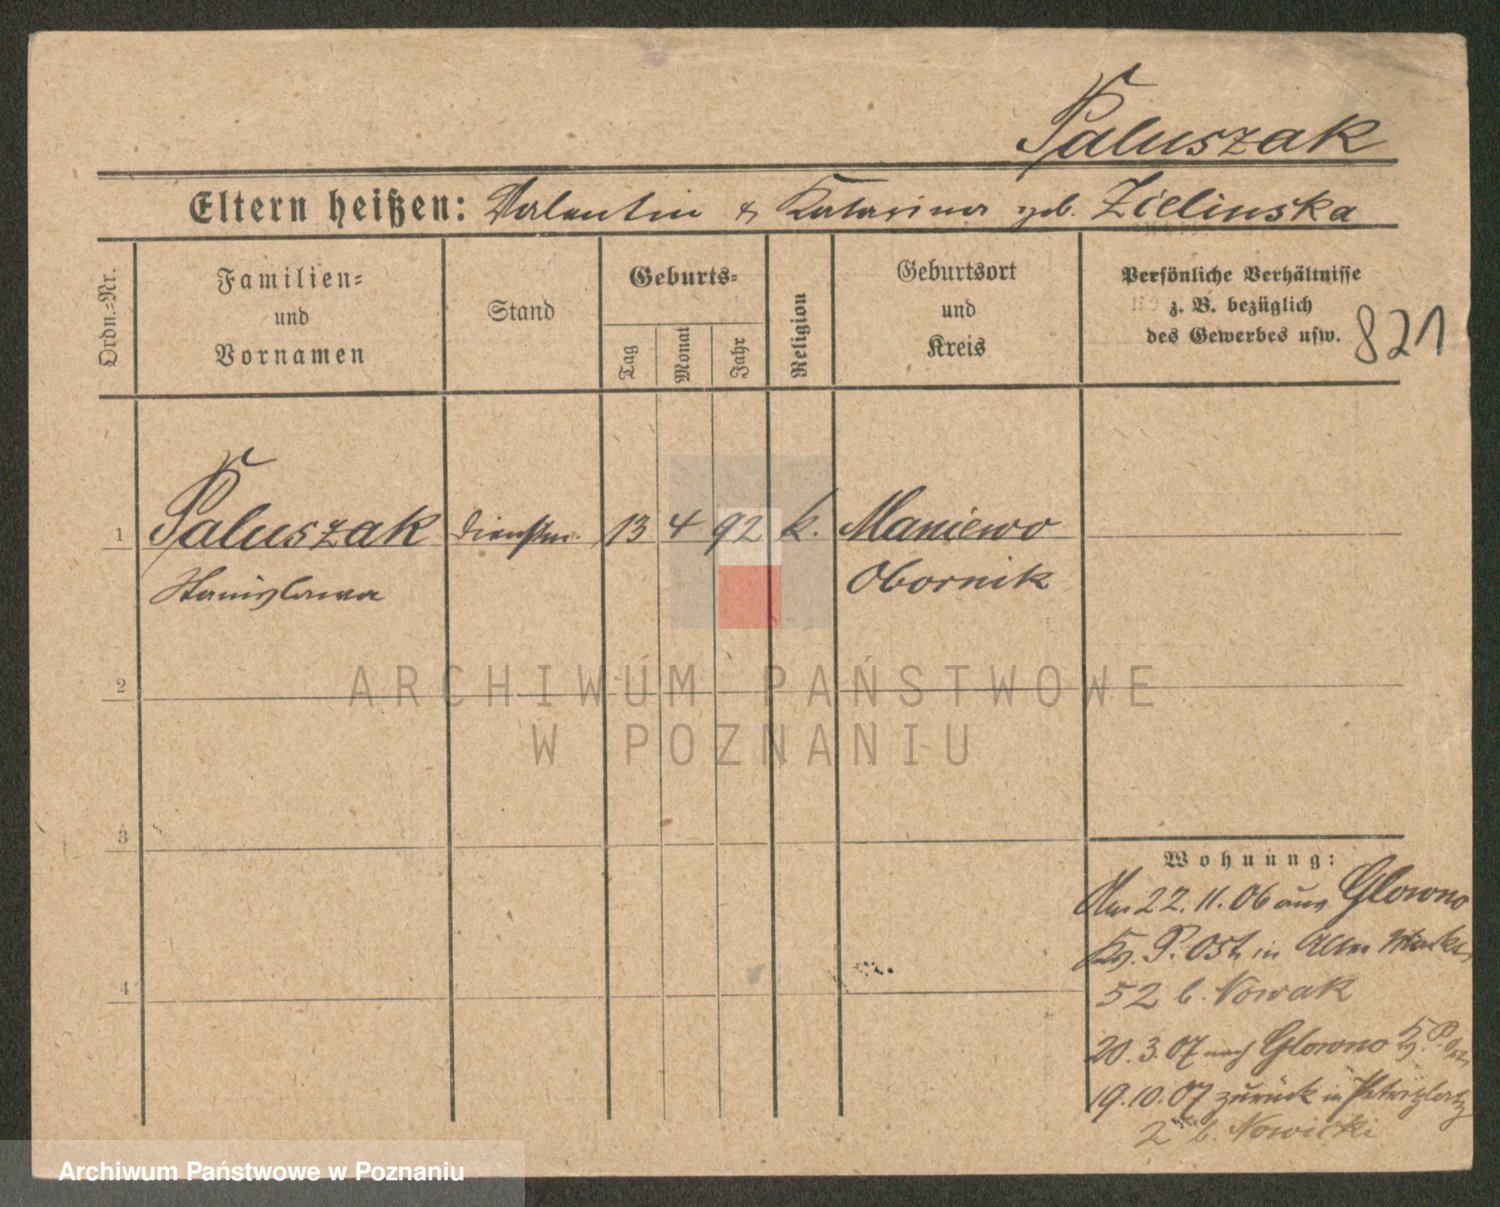 Paluszak
Eltern heißen: Valentin & Katarina geb. Zielinska
Ordn.=Nr.
Familien=
und
Vornamen
Stand
Geburts=
Tag
Monat
Jahr
Religion
Geburtsort
und
Kreis
Persönliche Verhältnisse
z. B. bezüglich
des Gewerbes usw.
821
1 Paluszak Dienstm. 13 4 92 k. Maniewo
Stanislawa Obornik
2
ARCHIWUM PAŃSTWOWE
W POZNANIU
3
Wohnung:
Am 22.11.06 aus Glowno
Kr. P. Ost, in Alter Markt
4
52 b. Nowak
20.3.07 nach Glowno Kr. P. Ost
19.10.07 zurück in Petriplatz
2 b. Nowicki
Archiwum Państwowe w Poznaniu